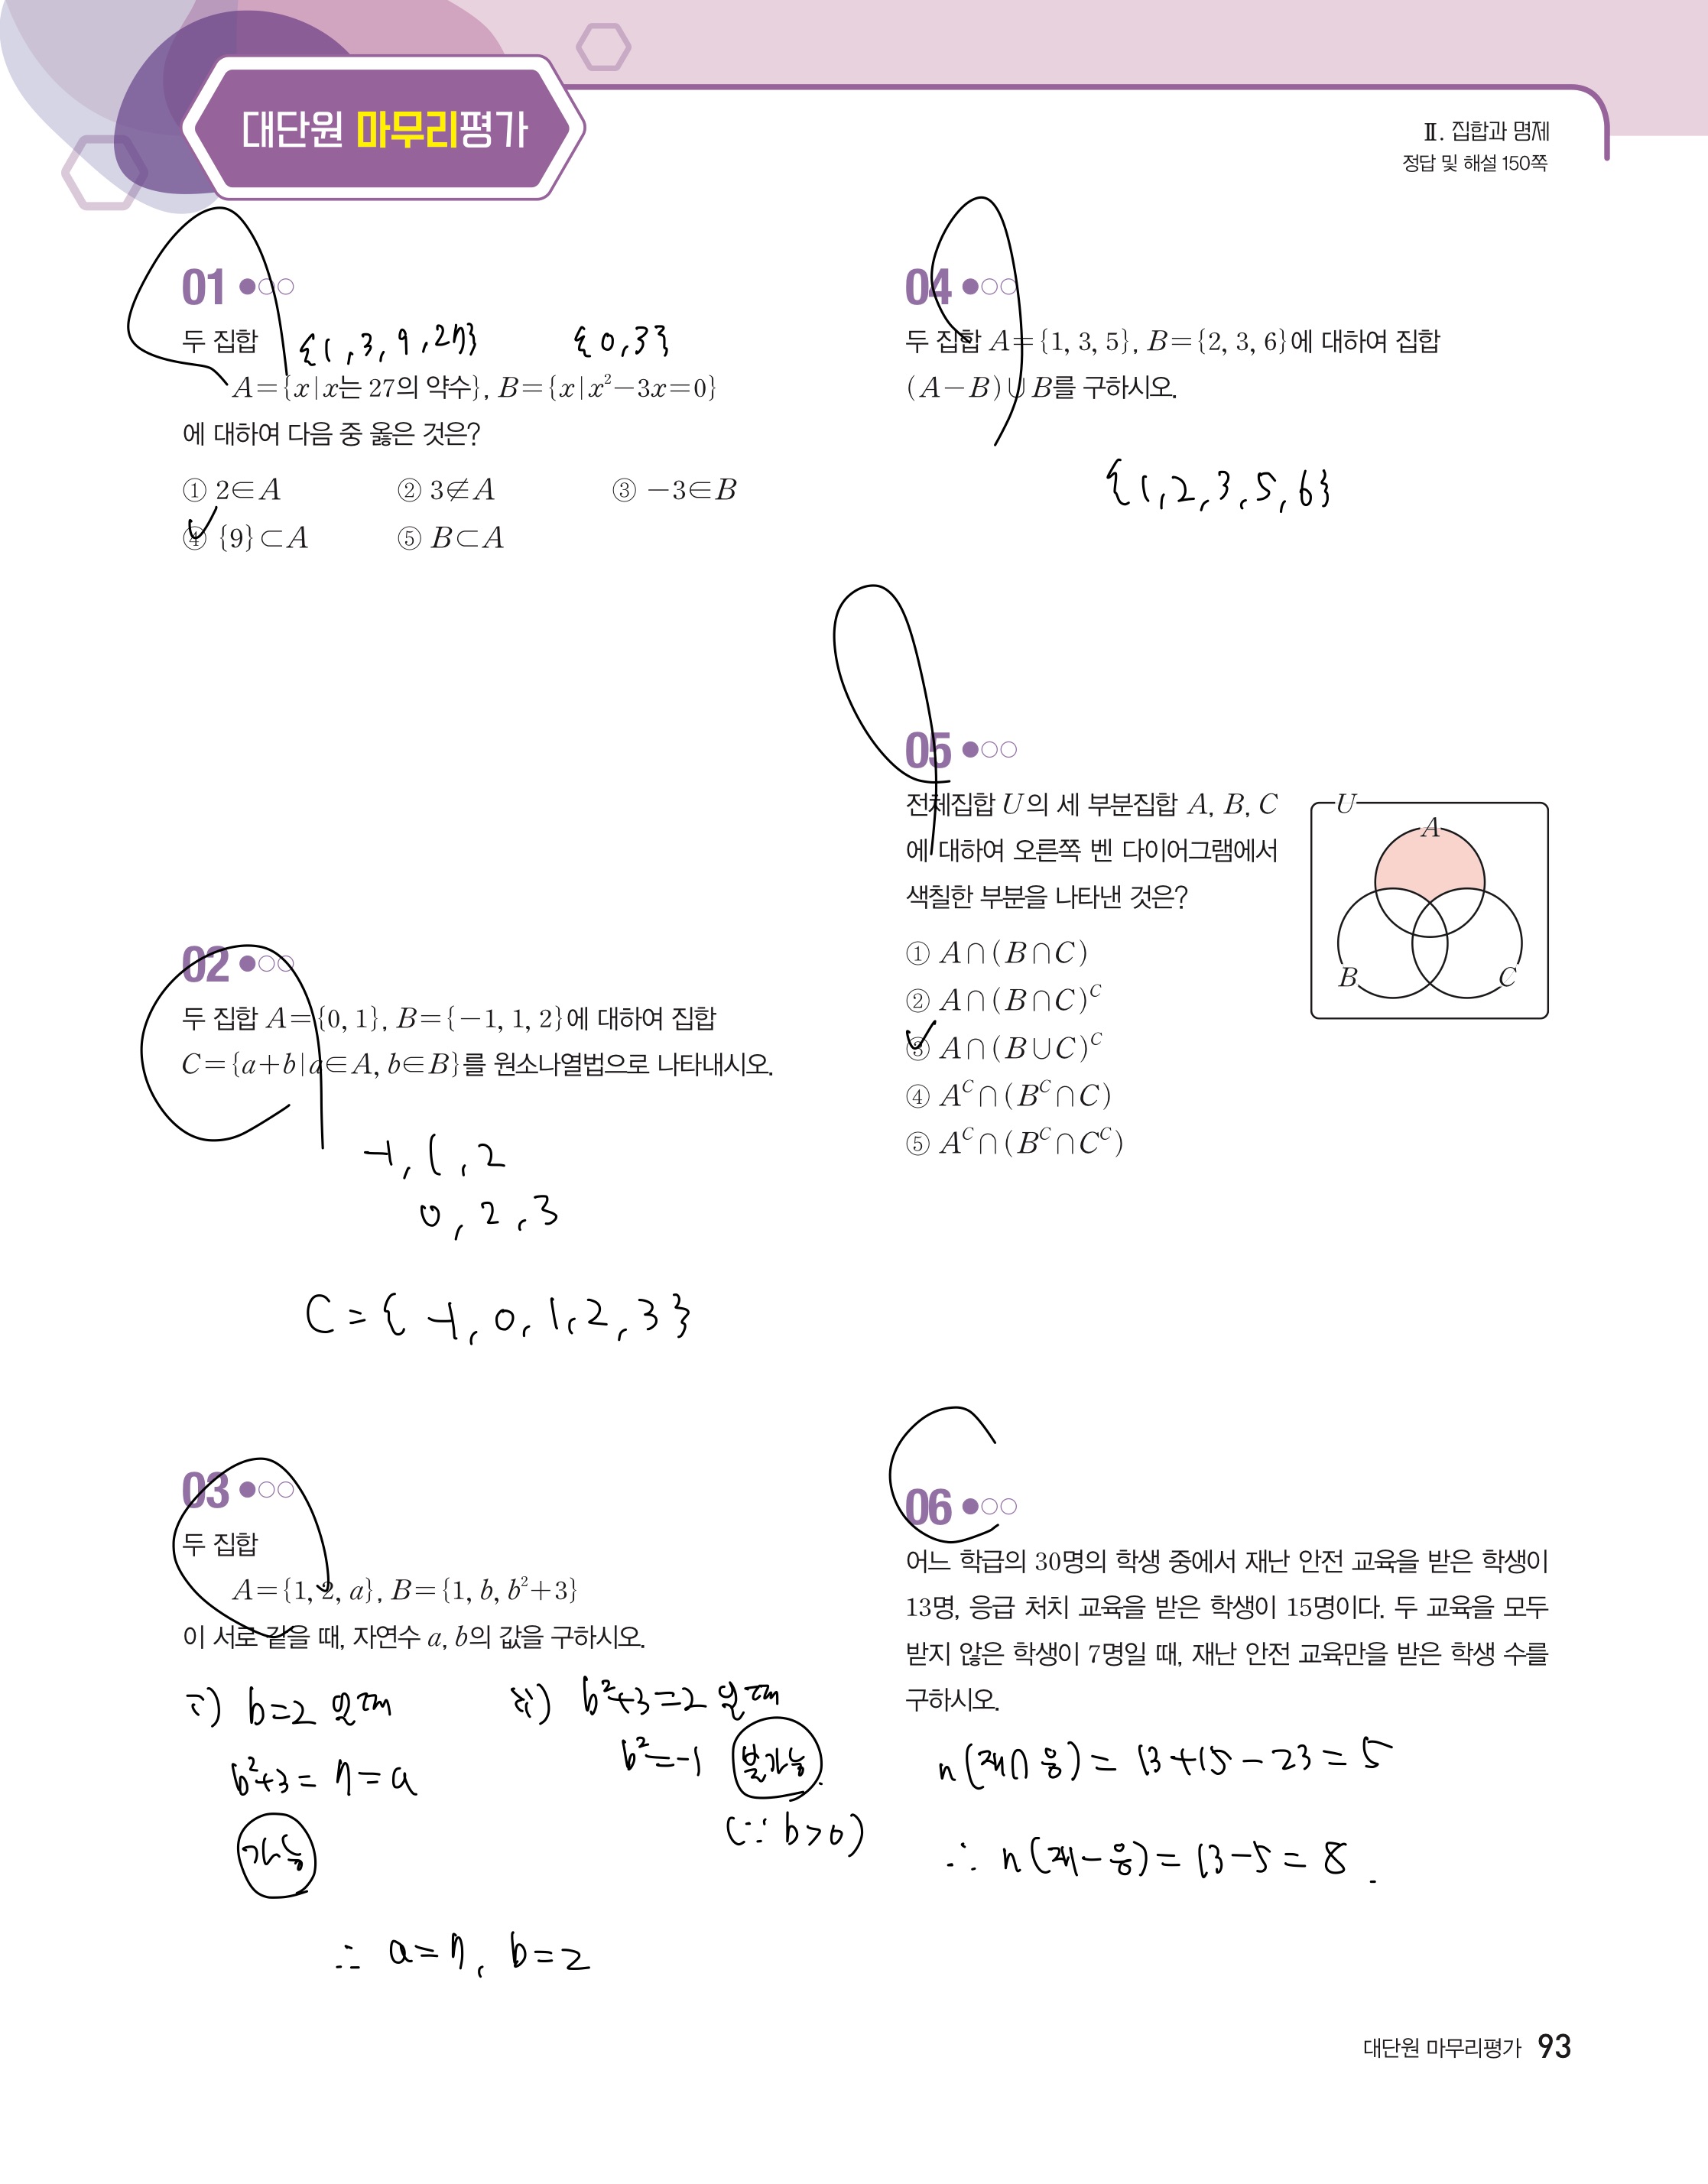 대단원 마무리평가
Ⅱ. 집합과 명제
정답 및 해설 150쪽
01
두 집합
{1, 3, 9, 27} {0, 3}
A={x|x는 27의 약수}, B={x|x²-3x=0}
에 대하여 다음 중 옳은 것은?
① 2∈A ② 3∉A ③ -3∈B
④ {9}⊂A ⑤ B⊂A
02
두 집합 A={0, 1}, B={-1, 1, 2}에 대하여 집합
C={a+b|a∈A, b∈B}를 원소나열법으로 나타내시오.
-1, 1, 2
0, 2, 3
C={-1, 0, 1, 2, 3}
03
두 집합
A={1, 2, a}, B={1, b, b²+3}
이 서로 같을 때, 자연수 a, b의 값을 구하시오.
i) b=2 일때
b²+3=7=a
가능
ii) b²+3=2 일때
b²=-1 불가능.
(∵ b>0)
∴ a=7, b=2
04
두 집합 A={1, 3, 5}, B={2, 3, 6}에 대하여 집합
(A-B)∪B를 구하시오.
{1, 2, 3, 5, 6}
05
전체집합 U의 세 부분집합 A, B, C
에 대하여 오른쪽 벤 다이어그램에서
색칠한 부분을 나타낸 것은?
① A∩(B∩C)
② A∩(B∩C)ᶜ
③ A∩(B∪C)ᶜ
④ Aᶜ∩(Bᶜ∩C)
⑤ Aᶜ∩(Bᶜ∩Cᶜ)
U
A
B
C
06
어느 학급의 30명의 학생 중에서 재난 안전 교육을 받은 학생이
13명, 응급 처치 교육을 받은 학생이 15명이다. 두 교육을 모두
받지 않은 학생이 7명일 때, 재난 안전 교육만을 받은 학생 수를
구하시오.
n(재∩응)=13+15-23=5
∴ n(재-응)=13-5=8.
대단원 마무리평가 93